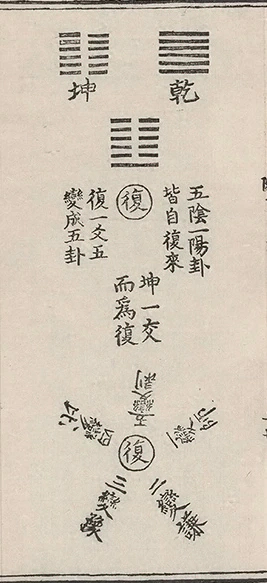 乾
坤
復
五陰一陽卦
皆自復來
復一爻五
變成五卦
坤一交
而為復
一變師
二變謙
三變豫
四變比
五變剥
復